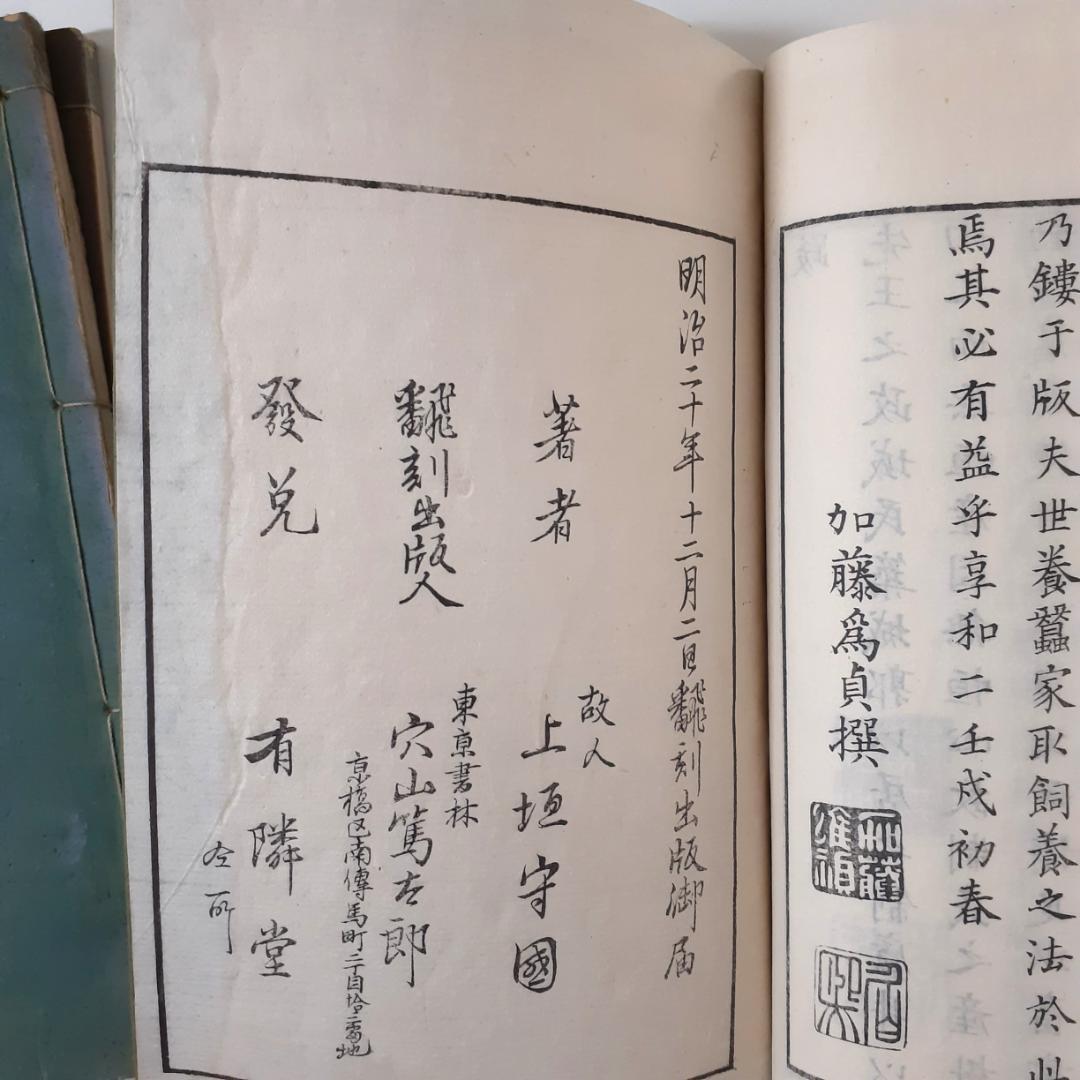 乃鏤于版夫世養蠶家取飼養之法於此
焉其必有益乎享和二壬戌初春
加藤爲貞撰
明治二十年十二月二日翻刻出版御届
著者 故人 上垣守國
翻刻出版人 東京書林 穴山篤太郎
京橋区南傳馬町二丁目拾三番地
發兌 有隣堂
仝所